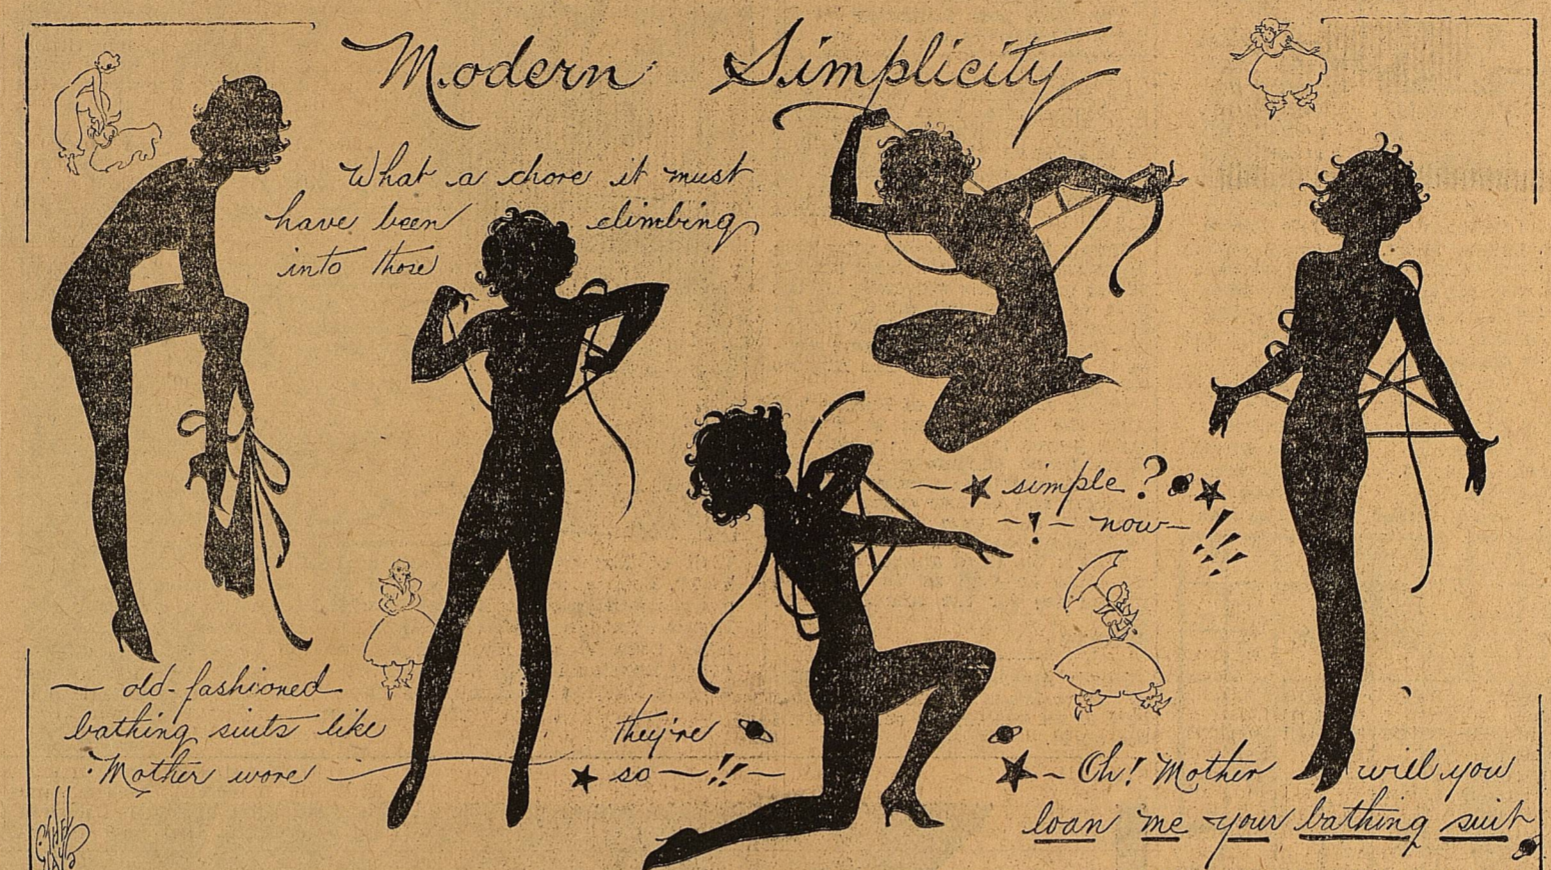 Modern Simplicity
What a chore it must
have been climbing
into those
— old-fashioned
bathing suits like
Mother wore —
they're
so — !! —
— simple ?
— ! — now —
!!!
— Oh! Mother will you
loan me your bathing suit